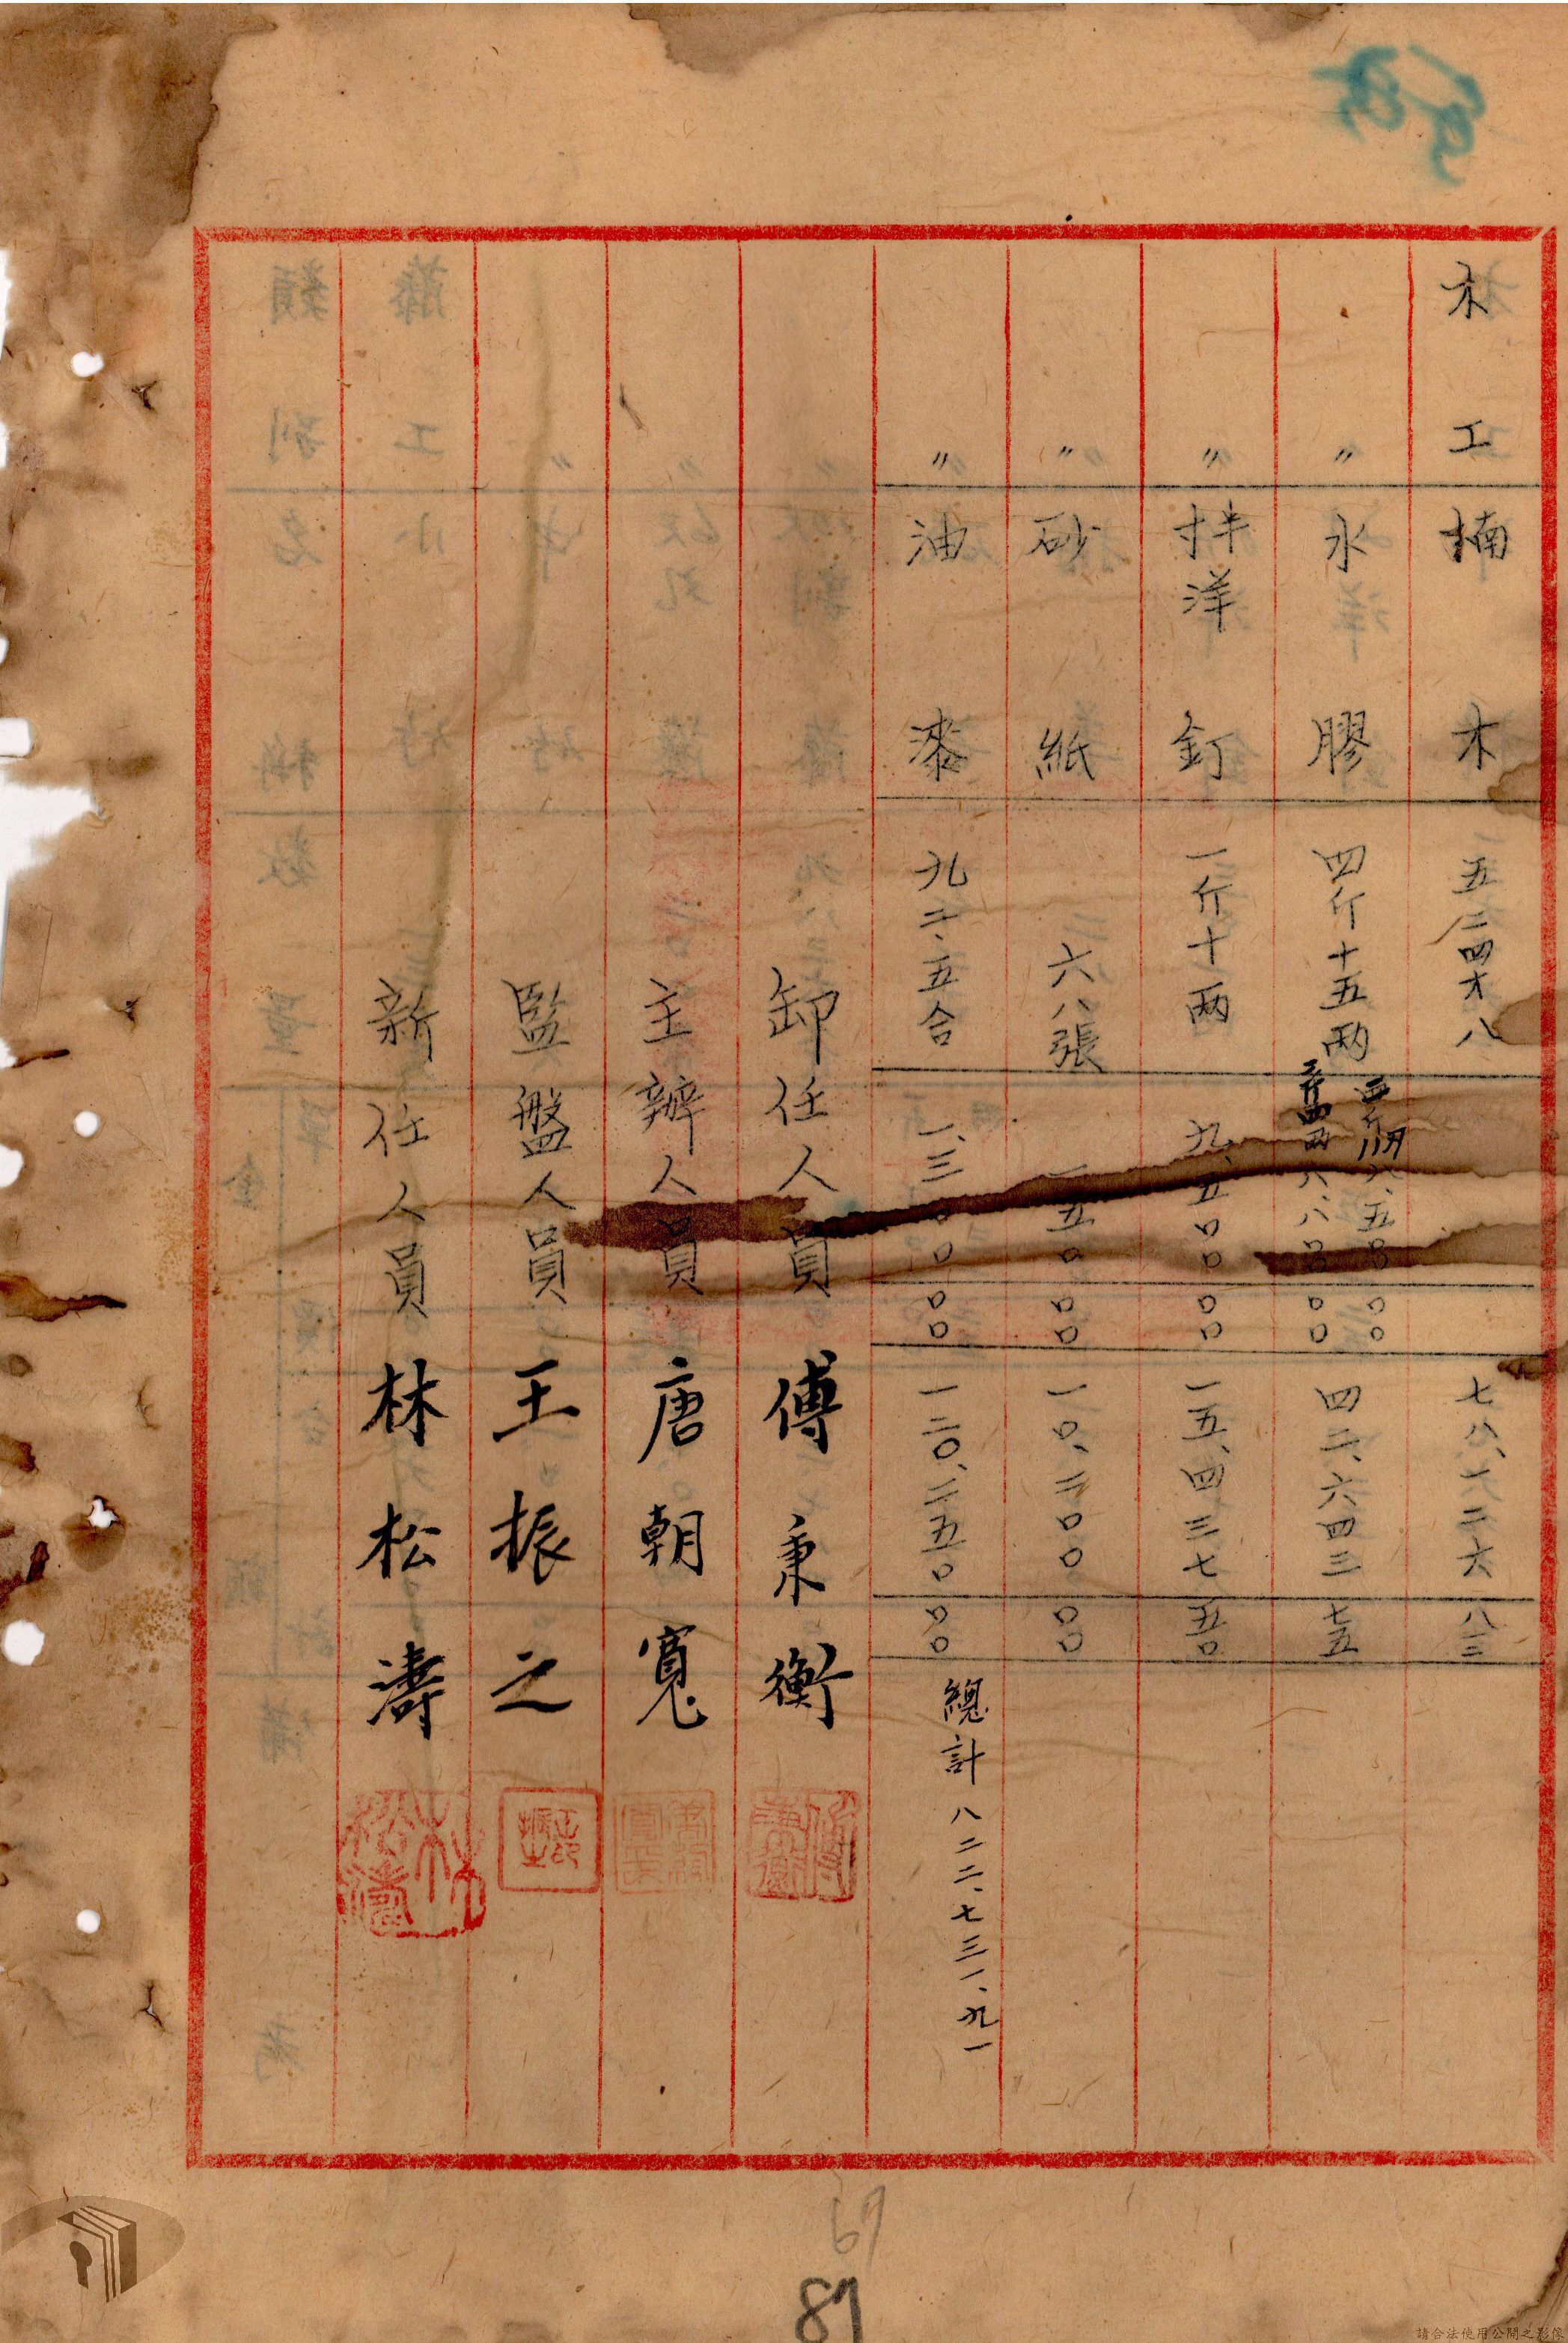 木工 楠木 五二四才八 七八、一二六 八三
〃 水膠 四斤十五兩 八、五〇〇 〇〇 六、八〇〇 〇〇 四二、六四三 七五
〃 拌洋釘 一斤十両 九、五〇〇 〇〇 一五、四三七 五〇
〃 砂紙 六八張 一五〇 〇〇 一〇、二〇〇 〇〇
〃 油漆 九二、五合 一、三〇〇 〇〇 一二〇、二五〇 〇〇 總計 八二二、七三一、九一
卸任人員 傅秉衡
主辦人員 唐朝寬
監盤人員 王振之
新任人員 林松濤
67
87
請合法使用公開之影像